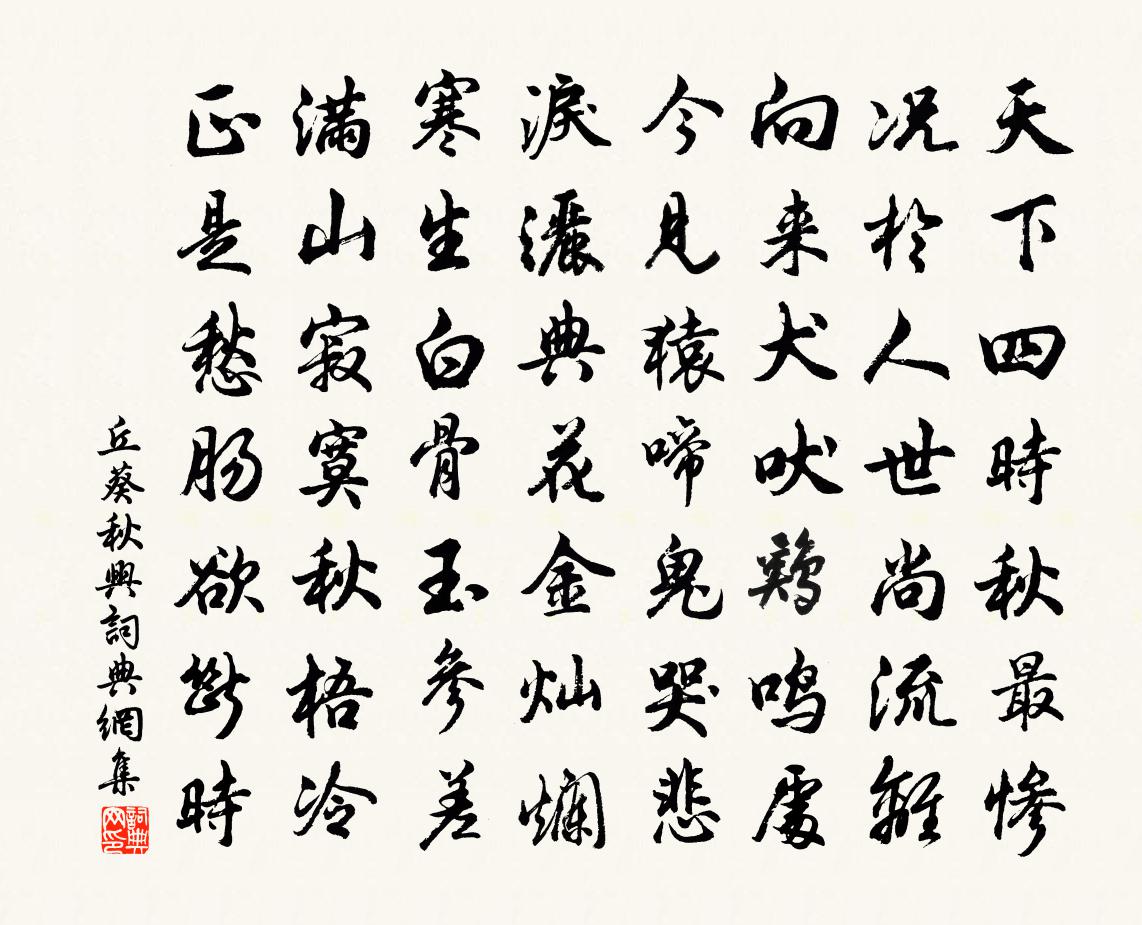 天下四時秋最慘
況於人世尚流離
向来犬吠鷄鳴處
今見猿啼鬼哭悲
淚灑典花金灿爛
寒生白骨玉參差
滿山寂寞秋梧冷
正是愁肠欲斷時
丘葵秋興詞典網集
詞典網印